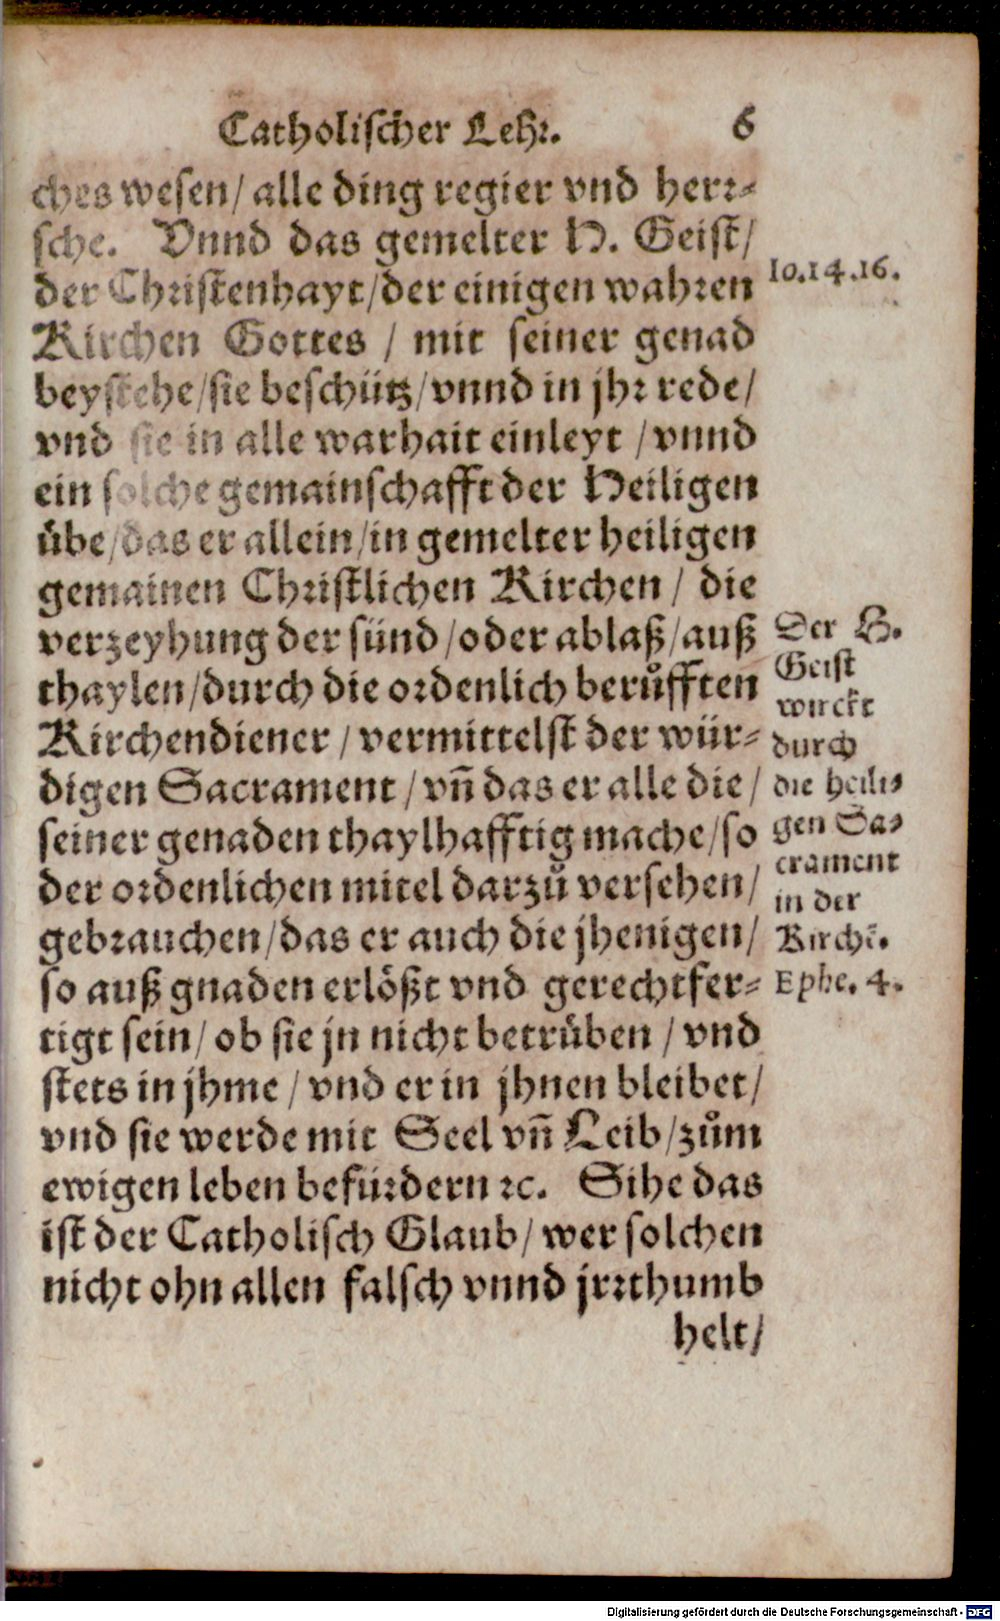 Catholischer Lehr. 6
ches wesen/ alle ding regier vnd herr-
sche. Vnnd das gemelter H. Geist/
der Christenhayt/der einigen wahren
Io.14.16.
Kirchen Gottes / mit seiner genad
beystehe/sie beschütz/vnnd in jhr rede/
vnd sie in alle warhait einleyt /vnnd
ein solche gemainschafft der Heiligen
übe/das er allein/in gemelter heiligen
gemainen Christlichen Kirchen / die
verzeyhung der sünd/oder ablaß/auß
thaylen/durch die ordenlich berůfften
Kirchendiener / vermittelst der wür-
digen Sacrament / vñ das er alle die /
seiner genaden thaylhafftig mache/so
der ordenlichen mitel darzů versehen/
gebrauchen/das er auch die jhenigen/
so auß gnaden erlößt vnd gerechtfer-
tigt sein/ ob sie jn nicht betrüben / vnd
stets in jhme / vnd er in jhnen bleibet/
vnd sie werde mit Seel vñ Leib/zům
ewigen leben befürdern ꝛc. Sihe das
ist der Catholisch Glaub/ wer solchen
nicht ohn allen falsch vnnd jrrthumb
helt/
Der H.
Geist
wirckt
durch
die heili-
gen Sa-
crament
in der
Kirchē.
Ephe. 4.
Digitalisierung gefördert durch die Deutsche Forschungsgemeinschaft - DFG